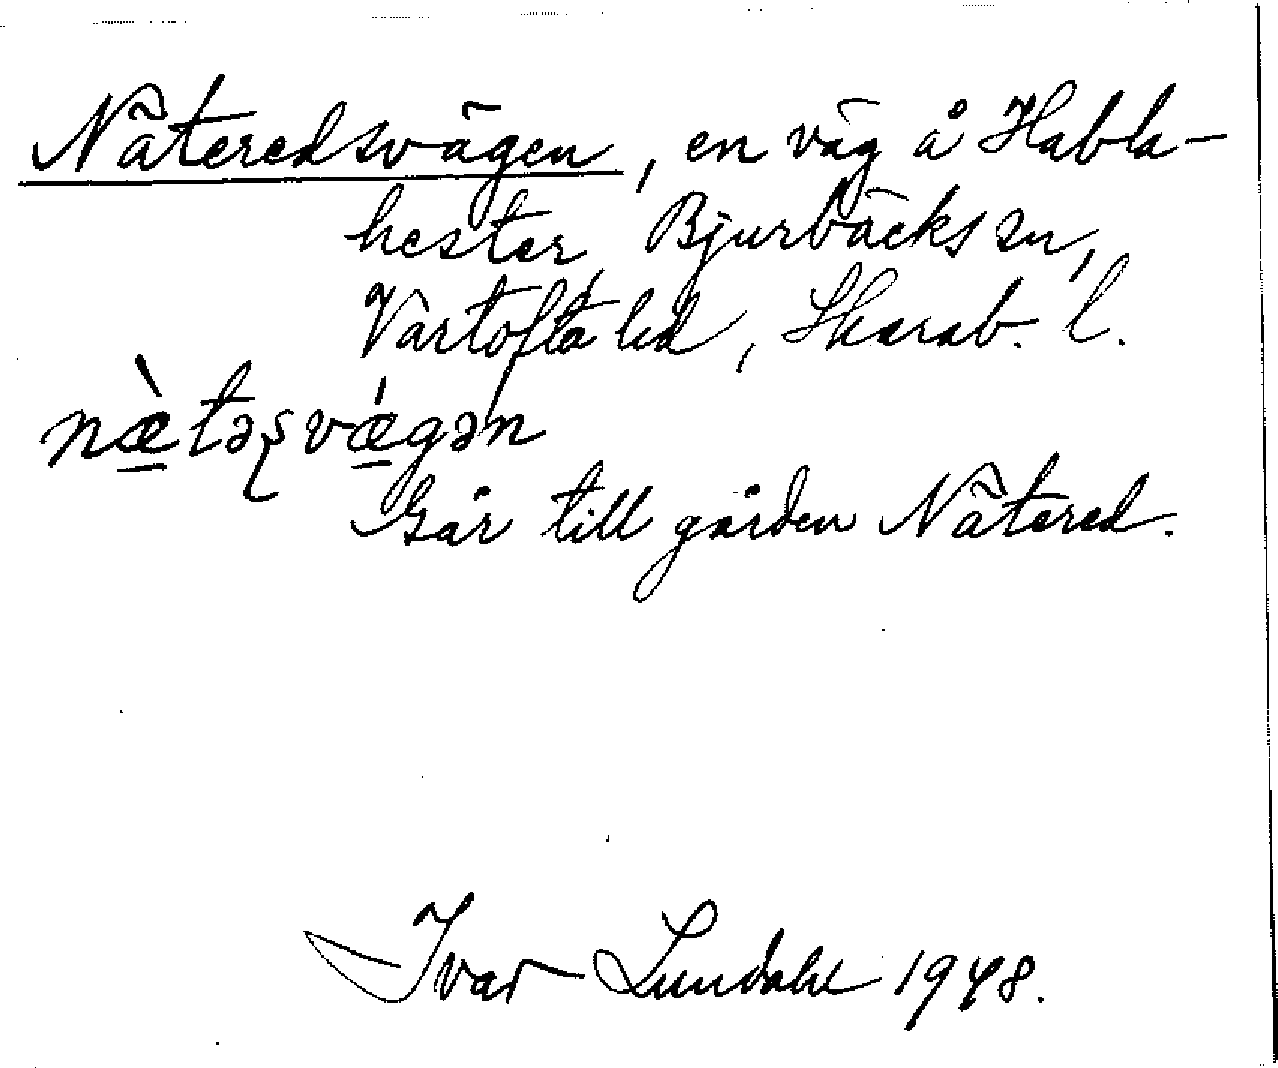 Näteredsvägen, en väg å Habla-
hester, Bjurbäcks sn,
Vartofta hd, Skarab. l.
næ̀təʂvǽgən
Går till gården Nätered.
Ivar Lundahl 1948.